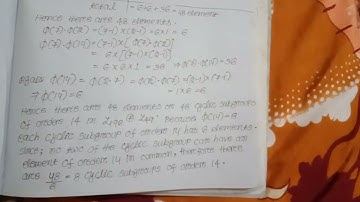 Total = 6+6+36 = 48 element
Hence there are 48 elements.
Φ(7)·Φ(2) = (7-1)×(2-1) = 6×1 = 6
Φ(7)·Φ(14) = (7-1)×[Φ(7)·Φ(2)]
= 6×[(7-1)×(2-1)]
= 6×6×1 = 36 ⇒ Φ(7)·Φ(14) = 36
Again Φ(14) = Φ(2·7) = Φ(2)·Φ(7) = (2-1)×(7-1)
7 Φ(14) = 6 = 1×6 = 6
Hence there are 48 elements so cyclic subgroups
of orders 14 in ⊕ because Φ(14) = 6
Each cyclic subgroup of orders 14 has 6 elements.
Since, no two of the cyclic subgroup can have an
element of orders 14 in common, therefore there
are 48/6 = 8 cyclic subgroups of orders 14.